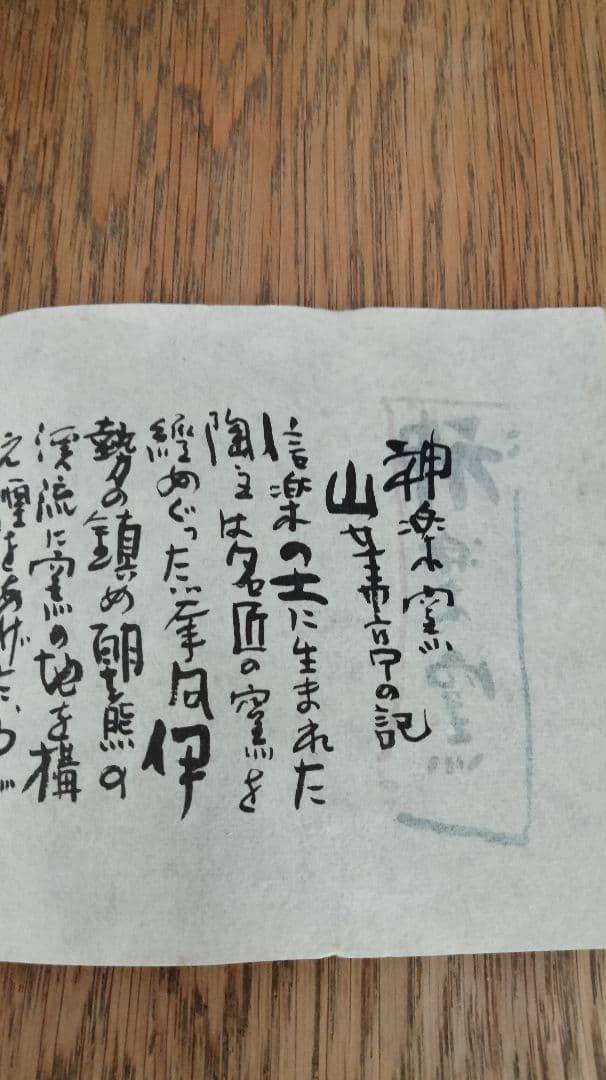 神楽窯
山 の記
信楽の土に生まれた
陶主は名匠の窯を
経めぐった 伊
勢の鎮め朝熊の
渓流に窯の地を構
え煙をあげた、